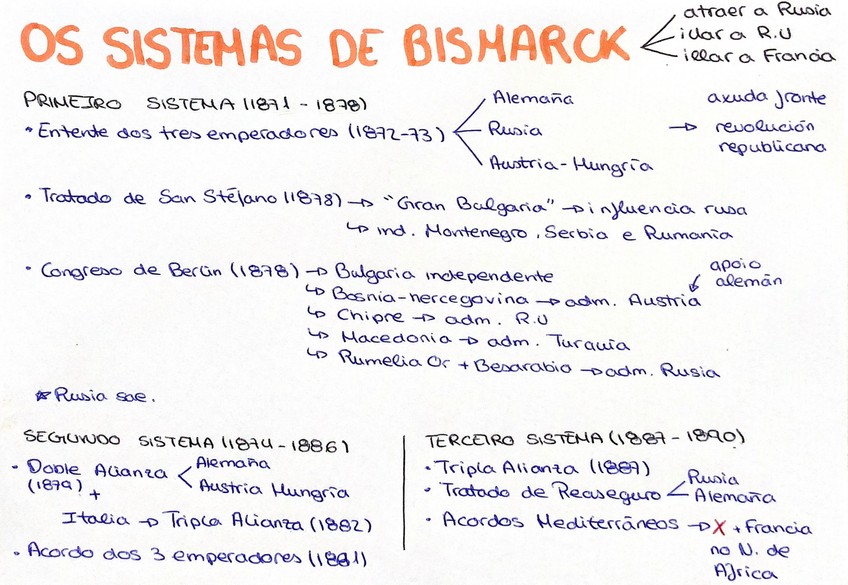 OS SISTEMAS DE BISMARCK
atraer a Rusia
illar a R.U
illar a Francia
PRIMEIRO SISTEMA (1871 - 1878)
• Entente dos tres emperadores (1872-73)
Alemaña
Rusia
Austria-Hungría
→ axuda fronte
revolución
republicana
• Tratado de San Stéfano (1878) → "Gran Bulgaria" → influencia rusa
↳ ind. Montenegro, Serbia e Rumanía
• Congreso de Berlín (1878) → Bulgaria independente
↳ Bosnia-hercegovina → adm. Austria
apoio
alemán
↳ Chipre → adm. R.U
↳ Macedonia → adm. Turquia
↳ Rumelia Or + Besarabia → adm. Rusia
* Rusia sae.
SEGUNDO SISTEMA (1874 - 1886)
• Doble Alianza
(1879) +
Alemaña
Austria Hungría
Italia → Tripla Alianza (1882)
• Acordo dos 3 emperadores (1881)
TERCEIRO SISTEMA (1887 - 1890)
• Tripla Alianza (1887)
• Tratado de Reaseguro
Rusia
Alemaña
• Acordos Mediterráneos → X + Francia
no N. de
Africa